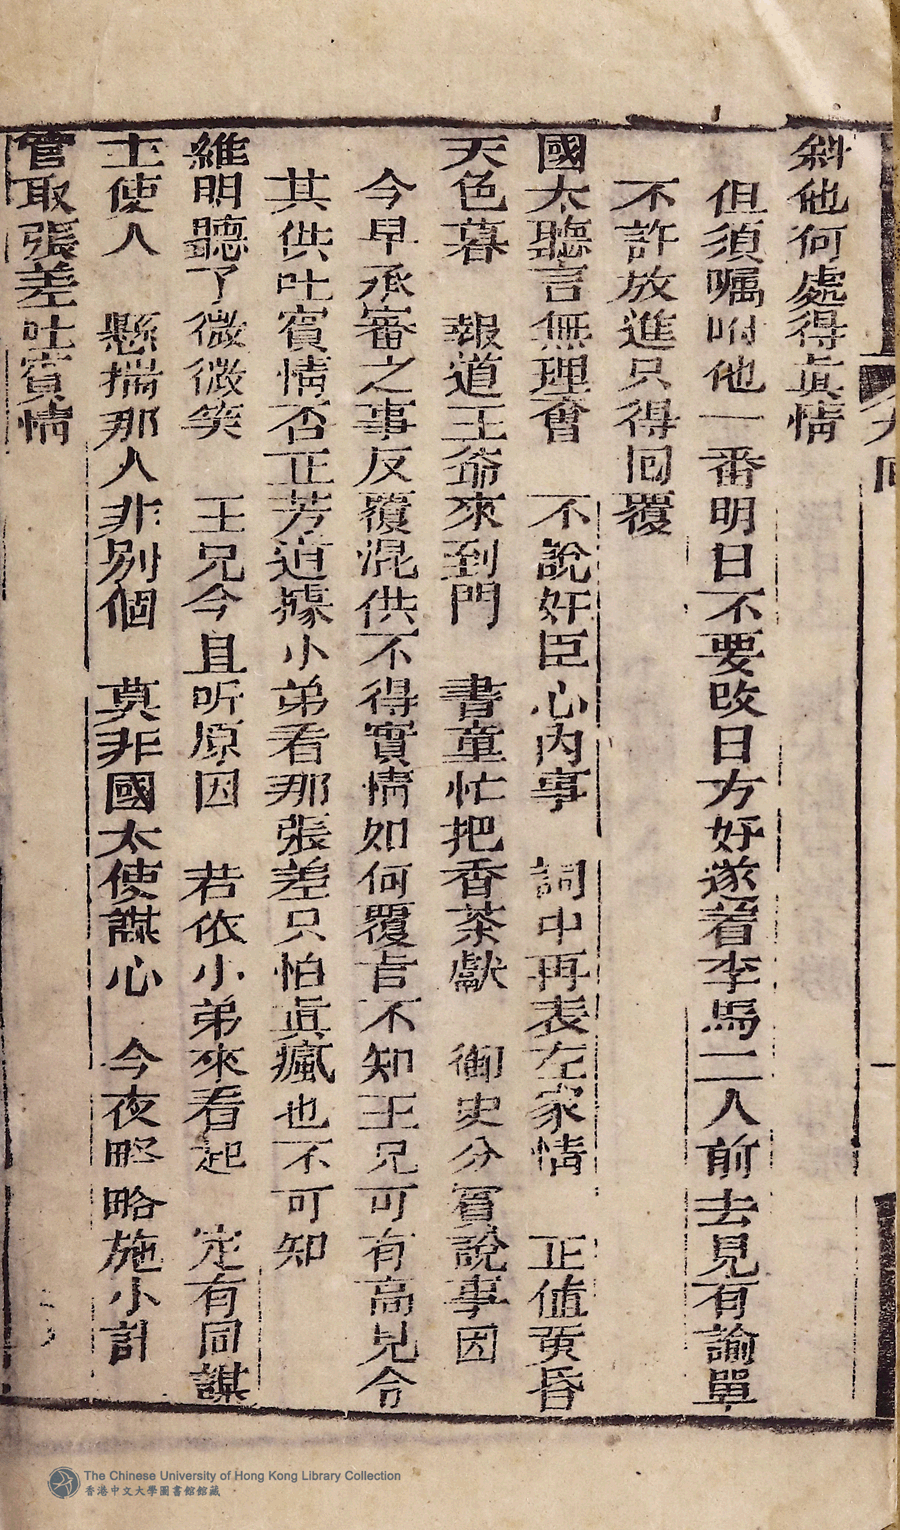 斜他何處得眞情
但須嘱咐他一番明日不要改日方好遂着李馬二人前去見有諭單
不許放進只得囘覆
國太聽言無理會　不說奸臣心内事　詞中再表左家情　正值黄昏
天色暮　報道王爺來到門　書童忙把香茶獻　御史分賔說事因
今早承審之事反覆混供不得實情如何覆㫖不知王兄可有高見令
其供吐實情否正芳道據小弟看那張差只怕眞瘋也不可知
維明聽了微微笑　王兄今且听原因　若依小弟來看起　定有同謀
主使人　懸揣那人非别個　莫非國太使謀心　今夜略略施小計
管取張差吐實情
九回
The Chinese University of Hong Kong Library Collection
香港中文大學圖書館館藏